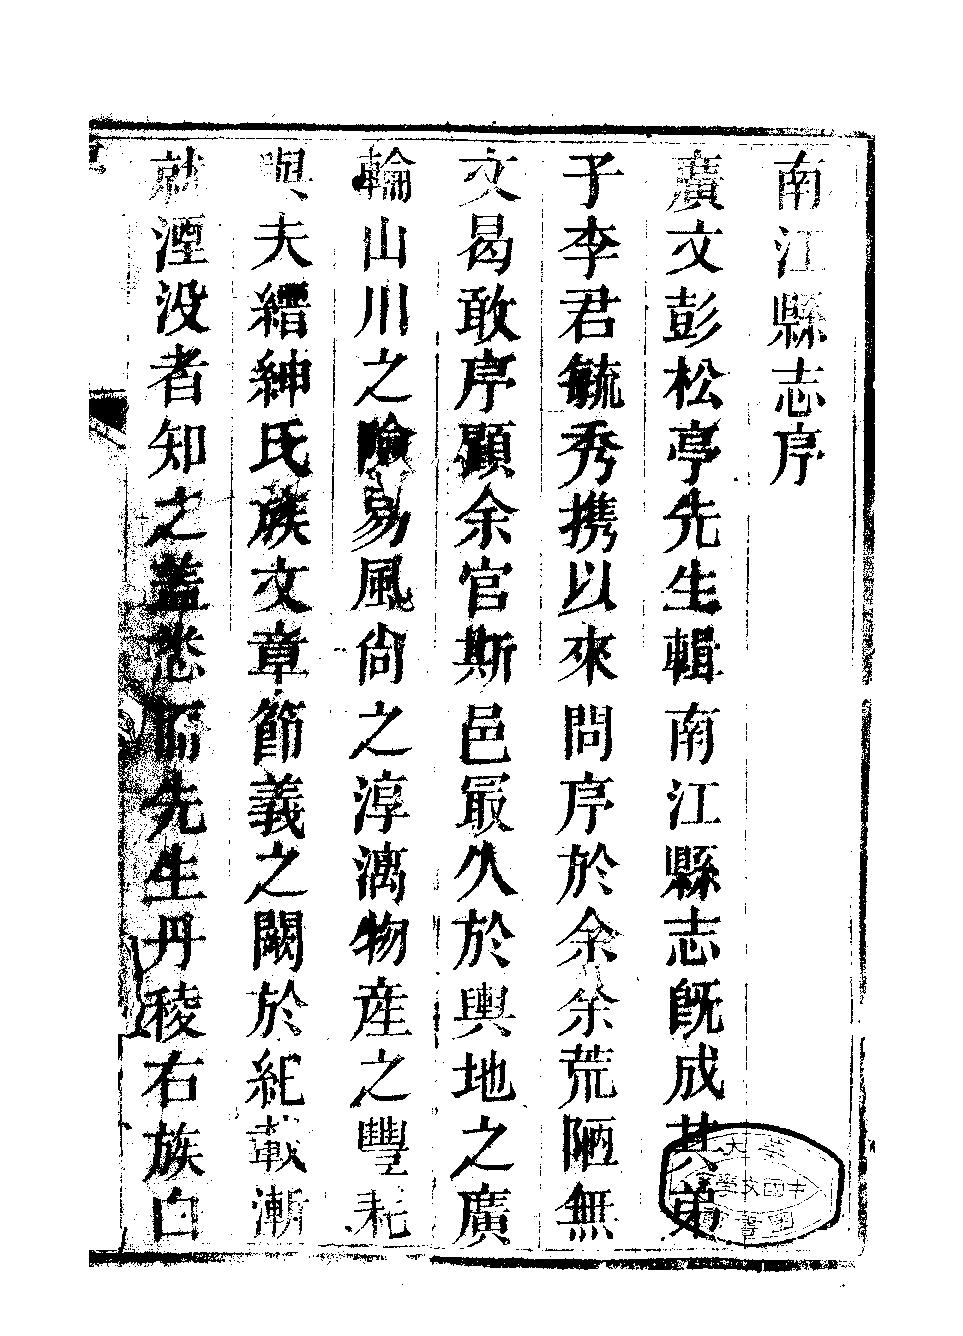 南江縣志序
廣文彭松亭先生輯南江縣志既成其弟
子李君毓秀携以來問序於余余荒陋無
文曷敢序顧余官斯邑冣久於輿地之廣
輪山川之險易風尚之淳漓物産之豐耗
與夫縉紳氏族文章節義之闕於紀載漸
就湮没者知之蓋悉而先生丹稜右族白